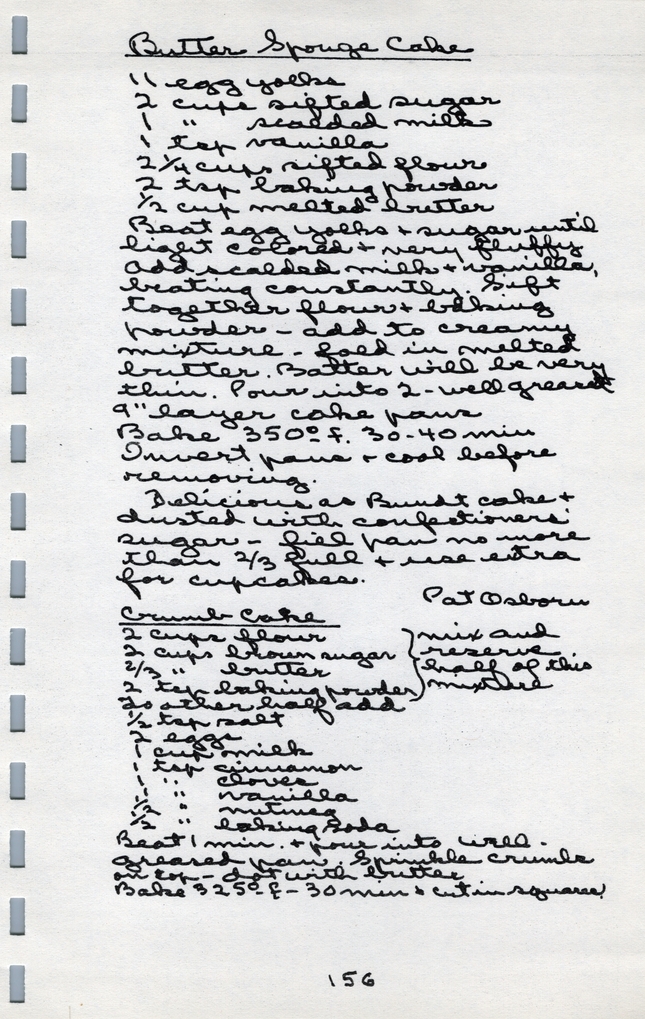 Butter Sponge Cake
11 egg yolks
2 cups sifted sugar
1 " scalded milk
1 tsp vanilla
2 1/4 cups sifted flour
2 tsp baking powder
1/2 cup melted butter
Beat egg yolks + sugar until
light colored + very fluffy
Add scalded milk + vanilla,
beating constantly. Sift
together flour + baking
powder - add to creamy
mixture - fold in melted
butter. Batter will be very
thin. Pour into 2 - well greased
9" layer cake pans
Bake 350° f. 30-40 min
Invert pans + cool before
removing.
Delicious as Bundt cake +
dusted with confectioners'
sugar - fill pan no more
than 2/3 full + use extra
for cupcakes.
Pat Osborn
Crumb Cake
2 cups flour
2 cups brown sugar
2/3 " butter
2 tsp baking powder
mix and
reserve
half of this
mixture
To other half add
1/2 tsp salt
2 eggs
1 cup milk
1 tsp cinnamon
1 " cloves
1 " vanilla
1/2 " nutmeg
1/2 " baking soda
Beat 1 min. + pour into well-
greased pan. Sprinkle crumbs
on top - dot with butter
Bake 325° f - 30 min + cut in squares
156